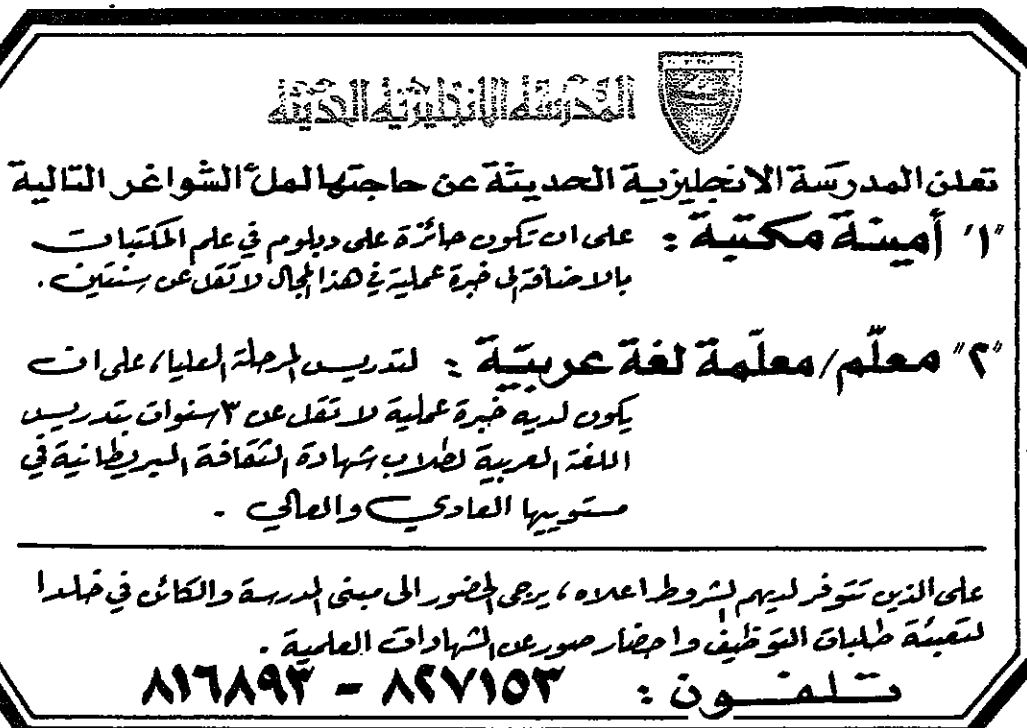 المدرسة الانجليزية الحديثة
تعلن المدرسة الانجليزية الحديثة عن حاجتها لملأ الشواغر التالية
"١" أمينة مكتبة : على ان تكون حائزة على دبلوم في علم المكتبات
بالاضافة الى خبرة عملية في هذا المجال لا تقل عن سنتين .
"٢" معلّم/معلّمة لغة عربيّة : لتدريس المرحلة العليا، على ان
يكون لديه خبرة عملية لا تقل عن ٣ سنوات بتدريس
اللغة العربية لطلاب شهادة الثقافة البريطانية في
مستوييها العادي والعالي .
على الذين تتوفر لديهم الشروط اعلاه، يرجى الحضور الى مبنى المدرسة والكائن في خلدا
لتعبئة طلبات التوظيف واحضار صور عن الشهادات العلمية .
تلفون : ٨٢٧١٥٣ - ٨١٦٨٩٣